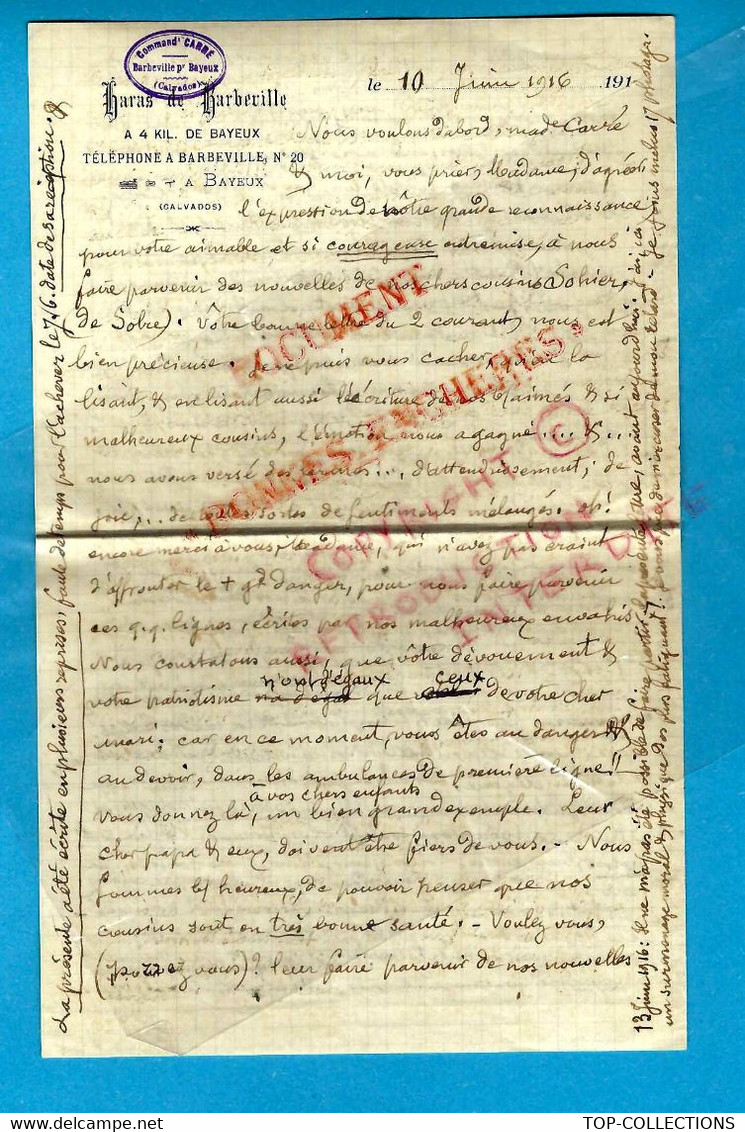 Command^t CARRÉ
Barbeville p^r Bayeux
(Calvados)
Haras de Barbeville
A 4 KIL. DE BAYEUX
TÉLÉPHONE A BARBEVILLE, N° 20
A BAYEUX
(CALVADOS)
le 10 Juin 1916 191
Nous voulons d'abord, mad^e Carré
& moi, vous prier, Madame, d'agréer
l'expression de nôtre grande reconnaissance
pour votre aimable et si courageuse entremise, à nous
faire parvenir des nouvelles de nos chers cousins Sohier,
de Sobre). Vôtre bonne lettre du 2 courant, nous est
bien précieuse. Je ne puis vous cacher, qu'en la
lisant, & en lisant aussi l'écriture de nos aimés & si
malheureux cousins, l'émotion nous a gagné.... &...
nous avons versé des larmes... d'attendrissement, de
joie,... de toutes sortes de sentiments mélangés. oh!
encore merci à vous, Madame, qui n'avez pas craint
d'affronter le + g^d danger, pour nous faire parvenir
ces q.q. lignes, écrites par nos malheureux envahis.
Nous constatons aussi, que vôtre dévouement &
votre patriotisme n'ont d'égaux que ceux de votre cher
mari; car en ce moment, vous êtes au danger &
au devoir, dans les ambulances de première ligne!!
vous donnez là, à vos chers enfants, un bien grand exemple. Leur
cher papa & eux, doivent être fiers de vous. - Nous
sommes heureux, de pouvoir penser que nos
cousins sont en très bonne santé. - Voulez vous,
(pouvez vous)? leur faire parvenir de nos nouvelles
La présente a été écrite en plusieurs reprises, faute de temps pour l'achever le 7.6. date de sa réception. &
13 Juin 1916: Il ne m'a pas été possible de faire partir la présente lettre, avant aujourd'hui. j'ai ici
un surmenage moral & physique des plus fatiguant!
DOCUMENT
"POMMES-ENCHERES"
COPYRIGHT ©
REPRODUCTION
INTERDITE
TOP-COLLECTIONS